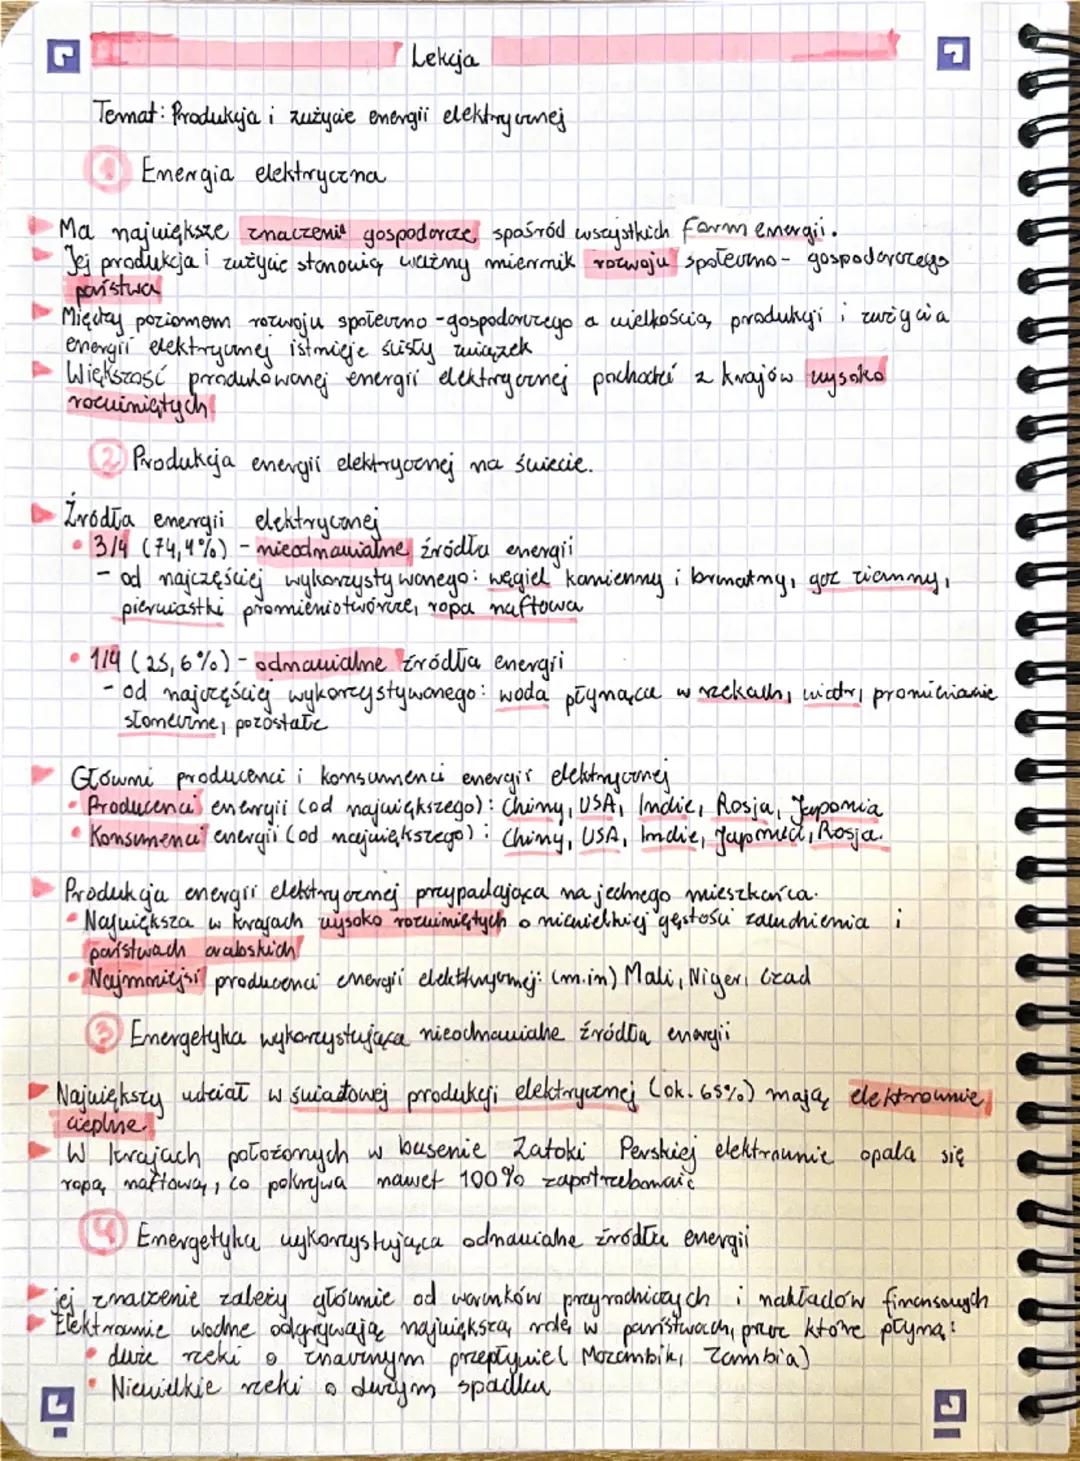 Lekcja
Temat: Produkcja i zużycie energii elektrycznej
1 Energia elektryczna
Ma największe znaczenie gospodarcze spośród wszystkich form energii.
Jej produkcja i zużycie stanowią ważny miernik rozwoju społeczno- gospodarczego
państwa
Między poziomem rozwoju społeczno-gospodarczego a wielkością produkcji i zużycia
energii elektrycznej istnieje ścisły związek
Większość produkowanej energii elektrycznej pochodzi z krajów wysoko
rozwiniętych
2 Produkcja energii elektrycznej na świecie.
Źródła energii elektrycznej
• 3/4 (74,4%) - nieodnawialne źródła energii
- od najczęściej wykorzystywanego: węgiel kamienny i brunatny, gaz ziemny,
pierwiastki promieniotwórcze, ropa naftowa
• 1/4 (25,6%) - odnawialne źródła energii
- od najczęściej wykorzystywanego: woda płynąca w rzekach, wiatr, promieniowanie
słoneczne, pozostałe
Główni producenci i konsumenci energii elektrycznej
• Producenci energii (od największego): Chiny, USA, Indie, Rosja, Japonia
• Konsumenci energii (od największego): Chiny, USA, Indie, Japonia, Rosja.
Produkcja energii elektrycznej przypadająca na jednego mieszkańca.
• Największa w krajach wysoko rozwiniętych o niewielkiej gęstości zaludnienia i
państwach arabskich
• Najmniejsi producenci energii elektrycznej: (m.in) Mali, Niger, Czad
3 Energetyka wykorzystująca nieodnawialne źródła energii
Największy udział w światowej produkcji elektrycznej (ok. 65%) mają elektrownie
cieplne.
W krajach położonych w basenie Zatoki Perskiej elektrownie opala się
ropą naftową, co pokrywa nawet 100% zapotrzebowań
4 Energetyka wykorzystująca odnawialne źródła energii
jej znaczenie zależy głównie od warunków przyrodniczych i nakładów finansowych
Elektrownie wodne odgrywają największą rolę w państwach, przez które płyną:
• duże rzeki o znacznym przepływie (Mozambik, Zambia)
• Niewielkie rzeki o dużym spadku